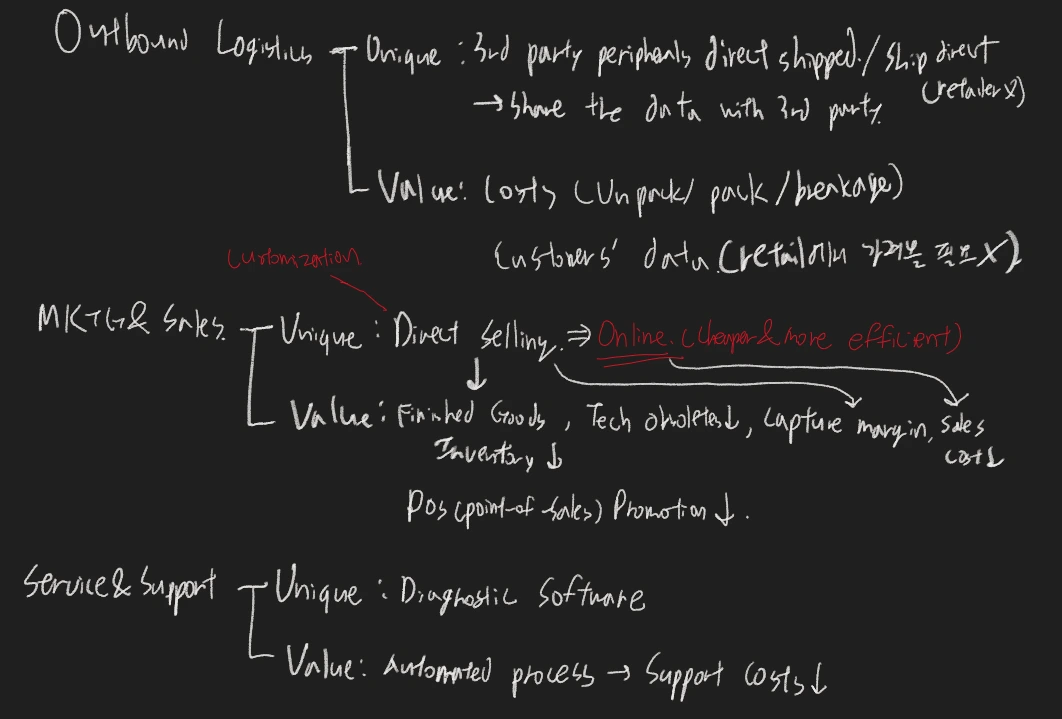 Outbound Logistics Unique : 3rd party peripherals direct shipped. / ship direct
(retailer X)
→ share the data with 3rd party.
Value: Costs (Unpack / pack / breakage)
Customers' data. (retail에서 가져올 필요 X)
Customization
MKTG & Sales. Unique : Direct selling. ⇒ Online. (cheaper & more efficient)
Value: Finished Goods , Tech obsoletes↓, Capture margin, Sales
Inventory ↓ cost↓
POS (point-of-sales) Promotion ↓.
Service & Support Unique : Diagnostic Software
Value: Automated process → Support costs↓